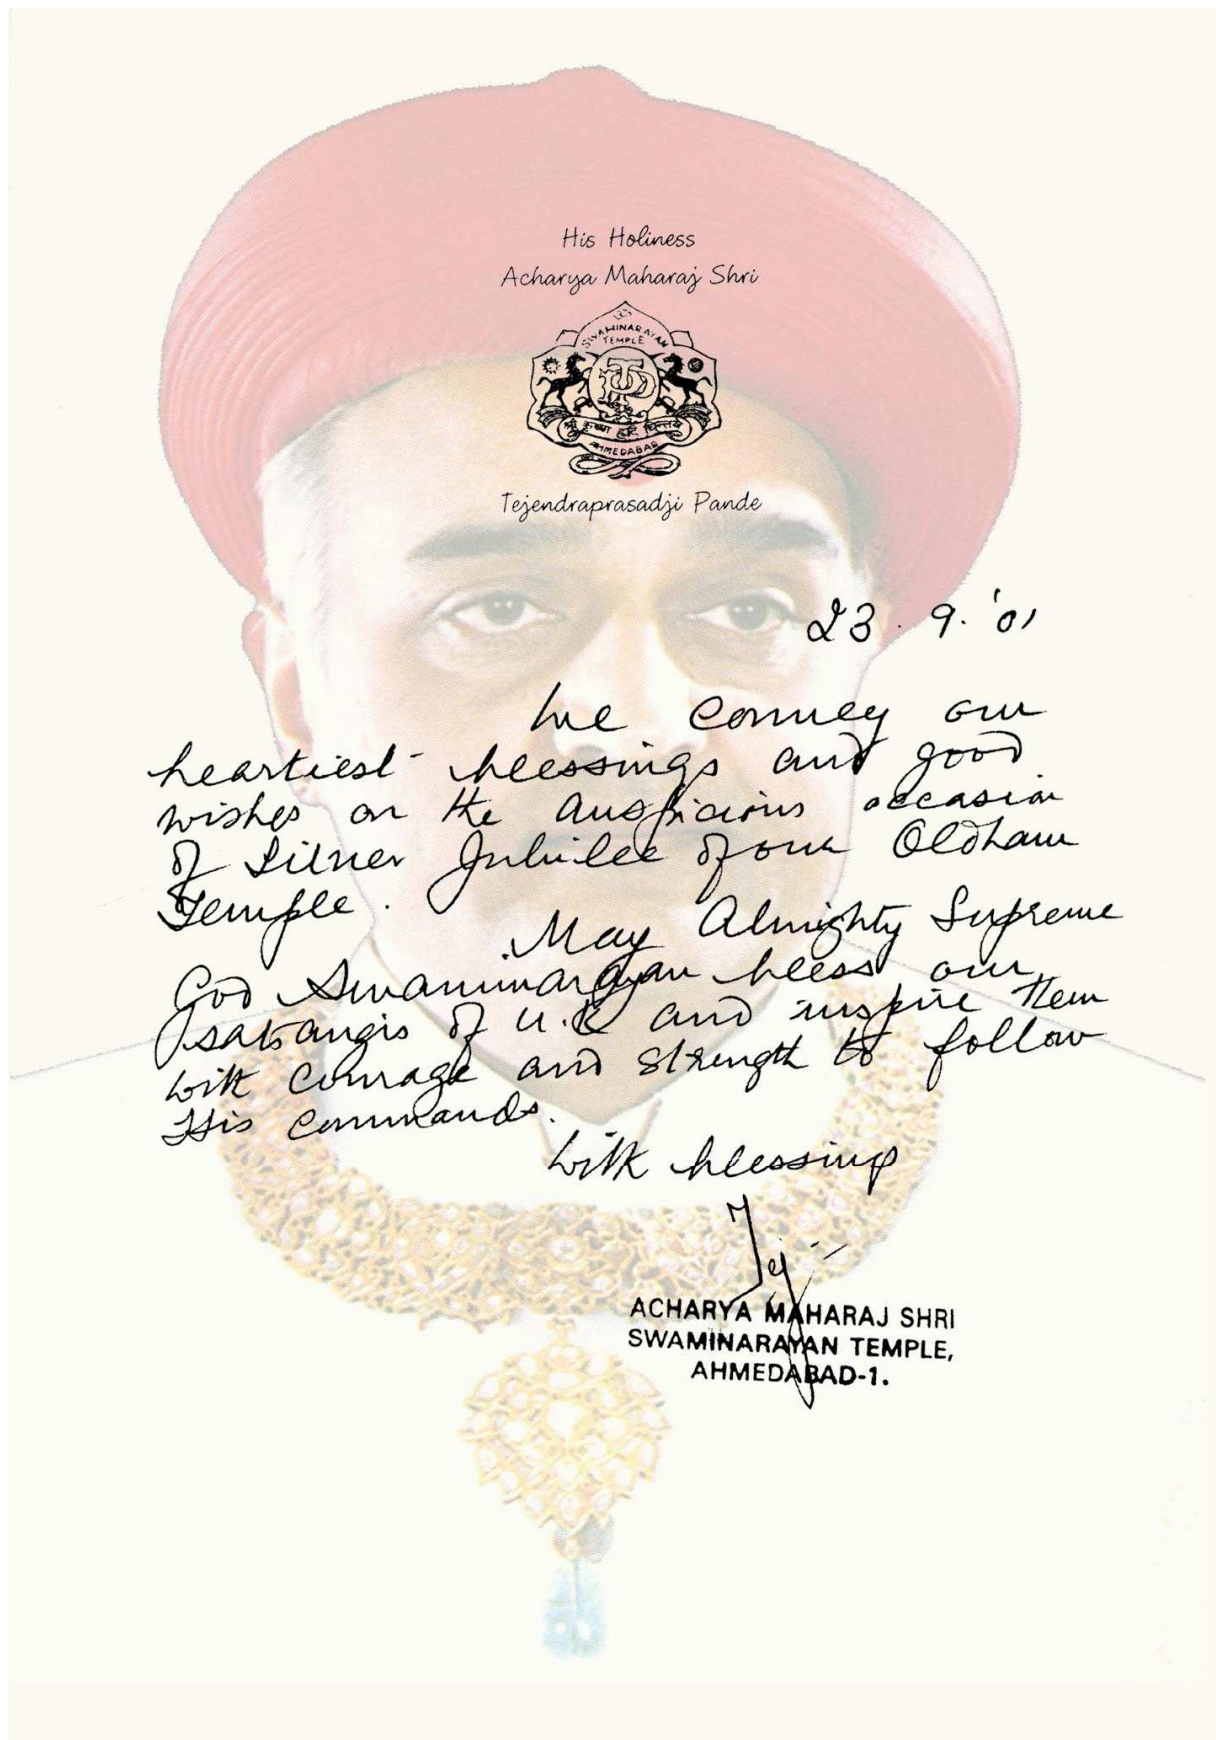 His Holiness
Acharya Maharaj Shri
SWAMINARAYAN
TEMPLE
AHMEDABAD
Tejendraprasadji Pande
23.9.'01
We convey our
heartiest blessings and good
wishes on the auspicious occasion
of Silver Jubilee of our Oldham
Temple.
May Almighty Supreme
God Swaminarayan bless our
satsangis of U.K and inspire them
with courage and strength to follow
His Commands.
With blessings
Tej
ACHARYA MAHARAJ SHRI
SWAMINARAYAN TEMPLE,
AHMEDABAD-1.